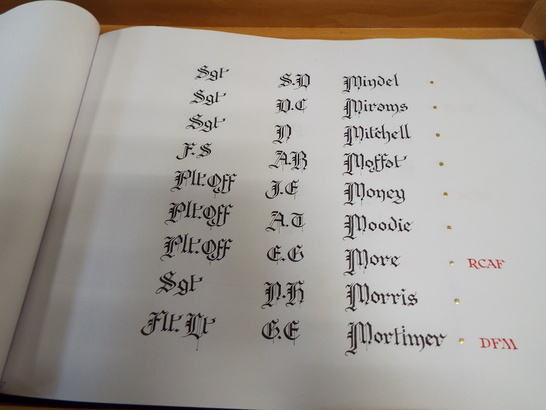 Sgt S.D Mindel
Sgt D.C Mirams
Sgt D Mitchell
F.S A.R Moffat
Plt.Off J.E Money
Plt.Off A.T Moodie
Plt.Off E.G More RCAF
Sgt Morris
Flt.Lt G.E Mortimer DFM